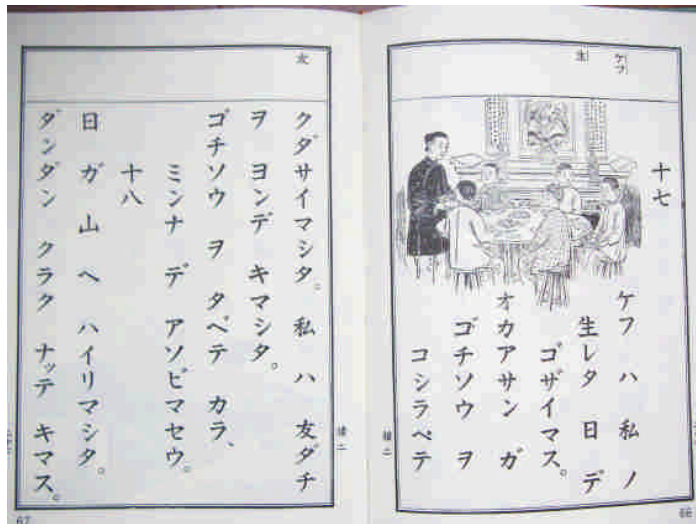 ケフ
生
十七
ケフ ハ 私 ノ
生レタ 日 デ
ゴザイマス。
オカアサン ガ
ゴチソウ ヲ
コシラベテ
66
友
クダサイマシタ。私 ハ 友ダチ
ヲ ヨンデ キマシタ。
ゴチソウ ヲ タベテ カラ、
ミンナ デ アソビマセウ。
十八
日 ガ 山 ヘ ハイリマシタ。
ダンダン クラク ナッテ キマス。
67